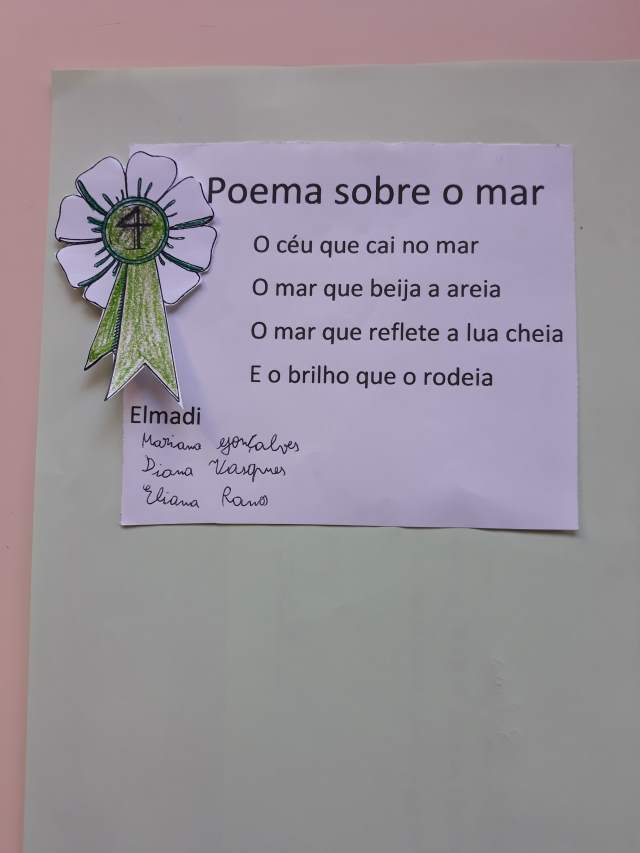 4
Poema sobre o mar
O céu que cai no mar
O mar que beija a areia
O mar que reflete a lua cheia
E o brilho que o rodeia
Elmadi
Mariana Gonçalves
Diana Vasques
Eliana